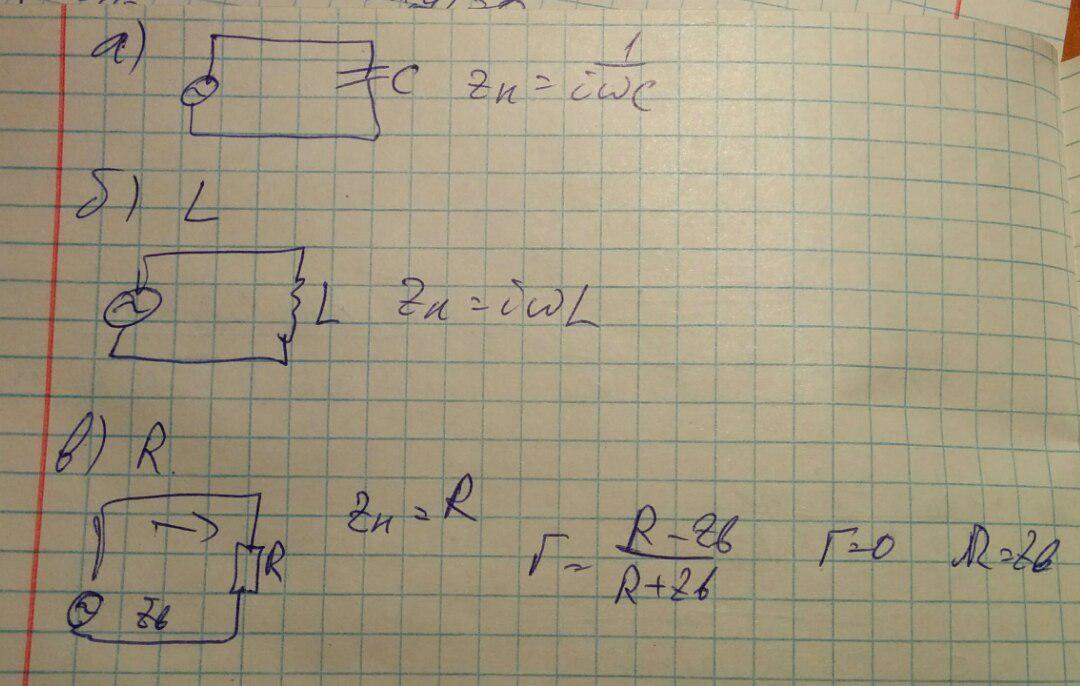 а)
C Zн = 1/iωC
б) L
L Zн = iωL
в) R
Zн = R
R Zв Γ = R - Zв / R + Zв Γ = 0 R = Zв